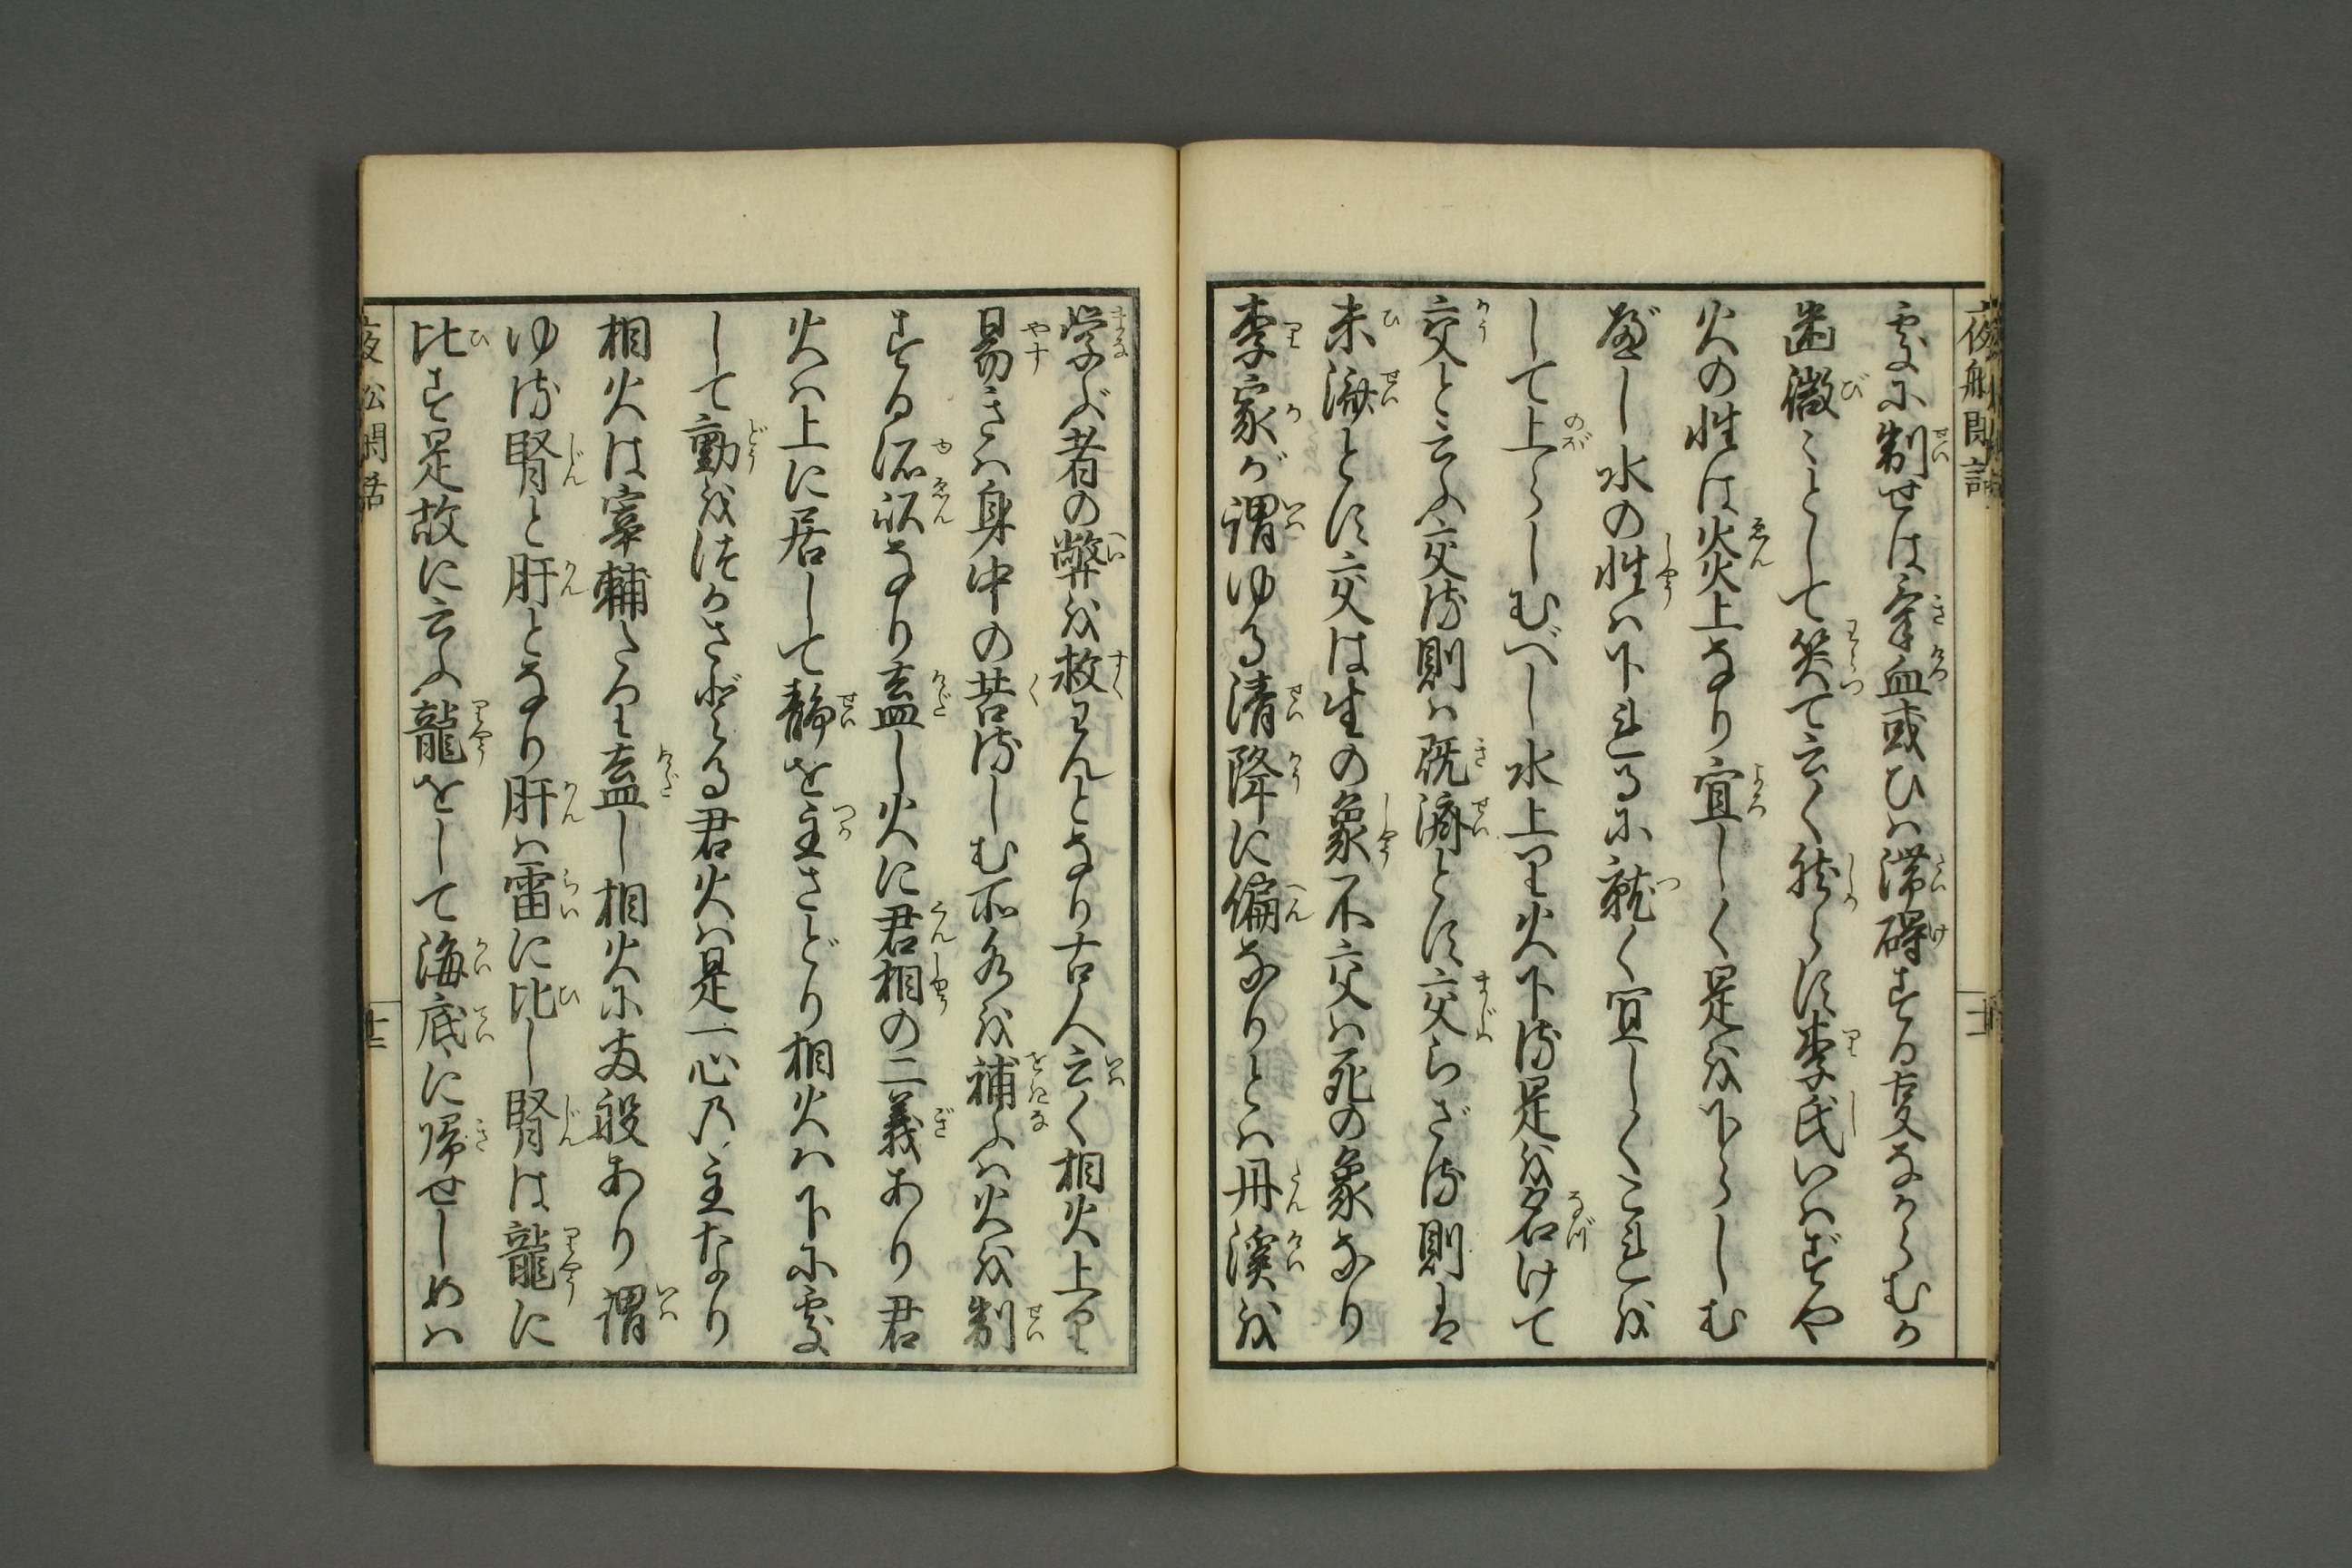 夜船閑話
處に制せば氣血或ひハ滞碍する事なからむか
幽微々として笑て云く然らず李氏いハずや
火の性は炎上なり宜しく是を下らしむ
べし水の性ハ下れるに就く宜しくこれを
して上らしむべし水上り火下る是を名けて
交と云ふ交る則ハ既済とす交らざる則は
未済とす交は生の象不交ハ死の象なり
李家が謂ゆる清降に偏なりとハ丹溪を
学ぶ者の弊を救ハんとなり古人云く相火上り
易きハ身中の苦る しむ所水を補ふハ火を制
する所以なり蓋し火に君相の二義あり君
火ハ上に居して静を主さどり相火ハ下に處
して動をつかさどる君火ハ是一心の主なり
相火は宰輔たり蓋し相火に両般あり謂
ゆる腎と肝となり肝ハ雷に比し腎は龍に
比す是故に云ふ龍をして海底に帰せしめハ
夜船閑話
十二